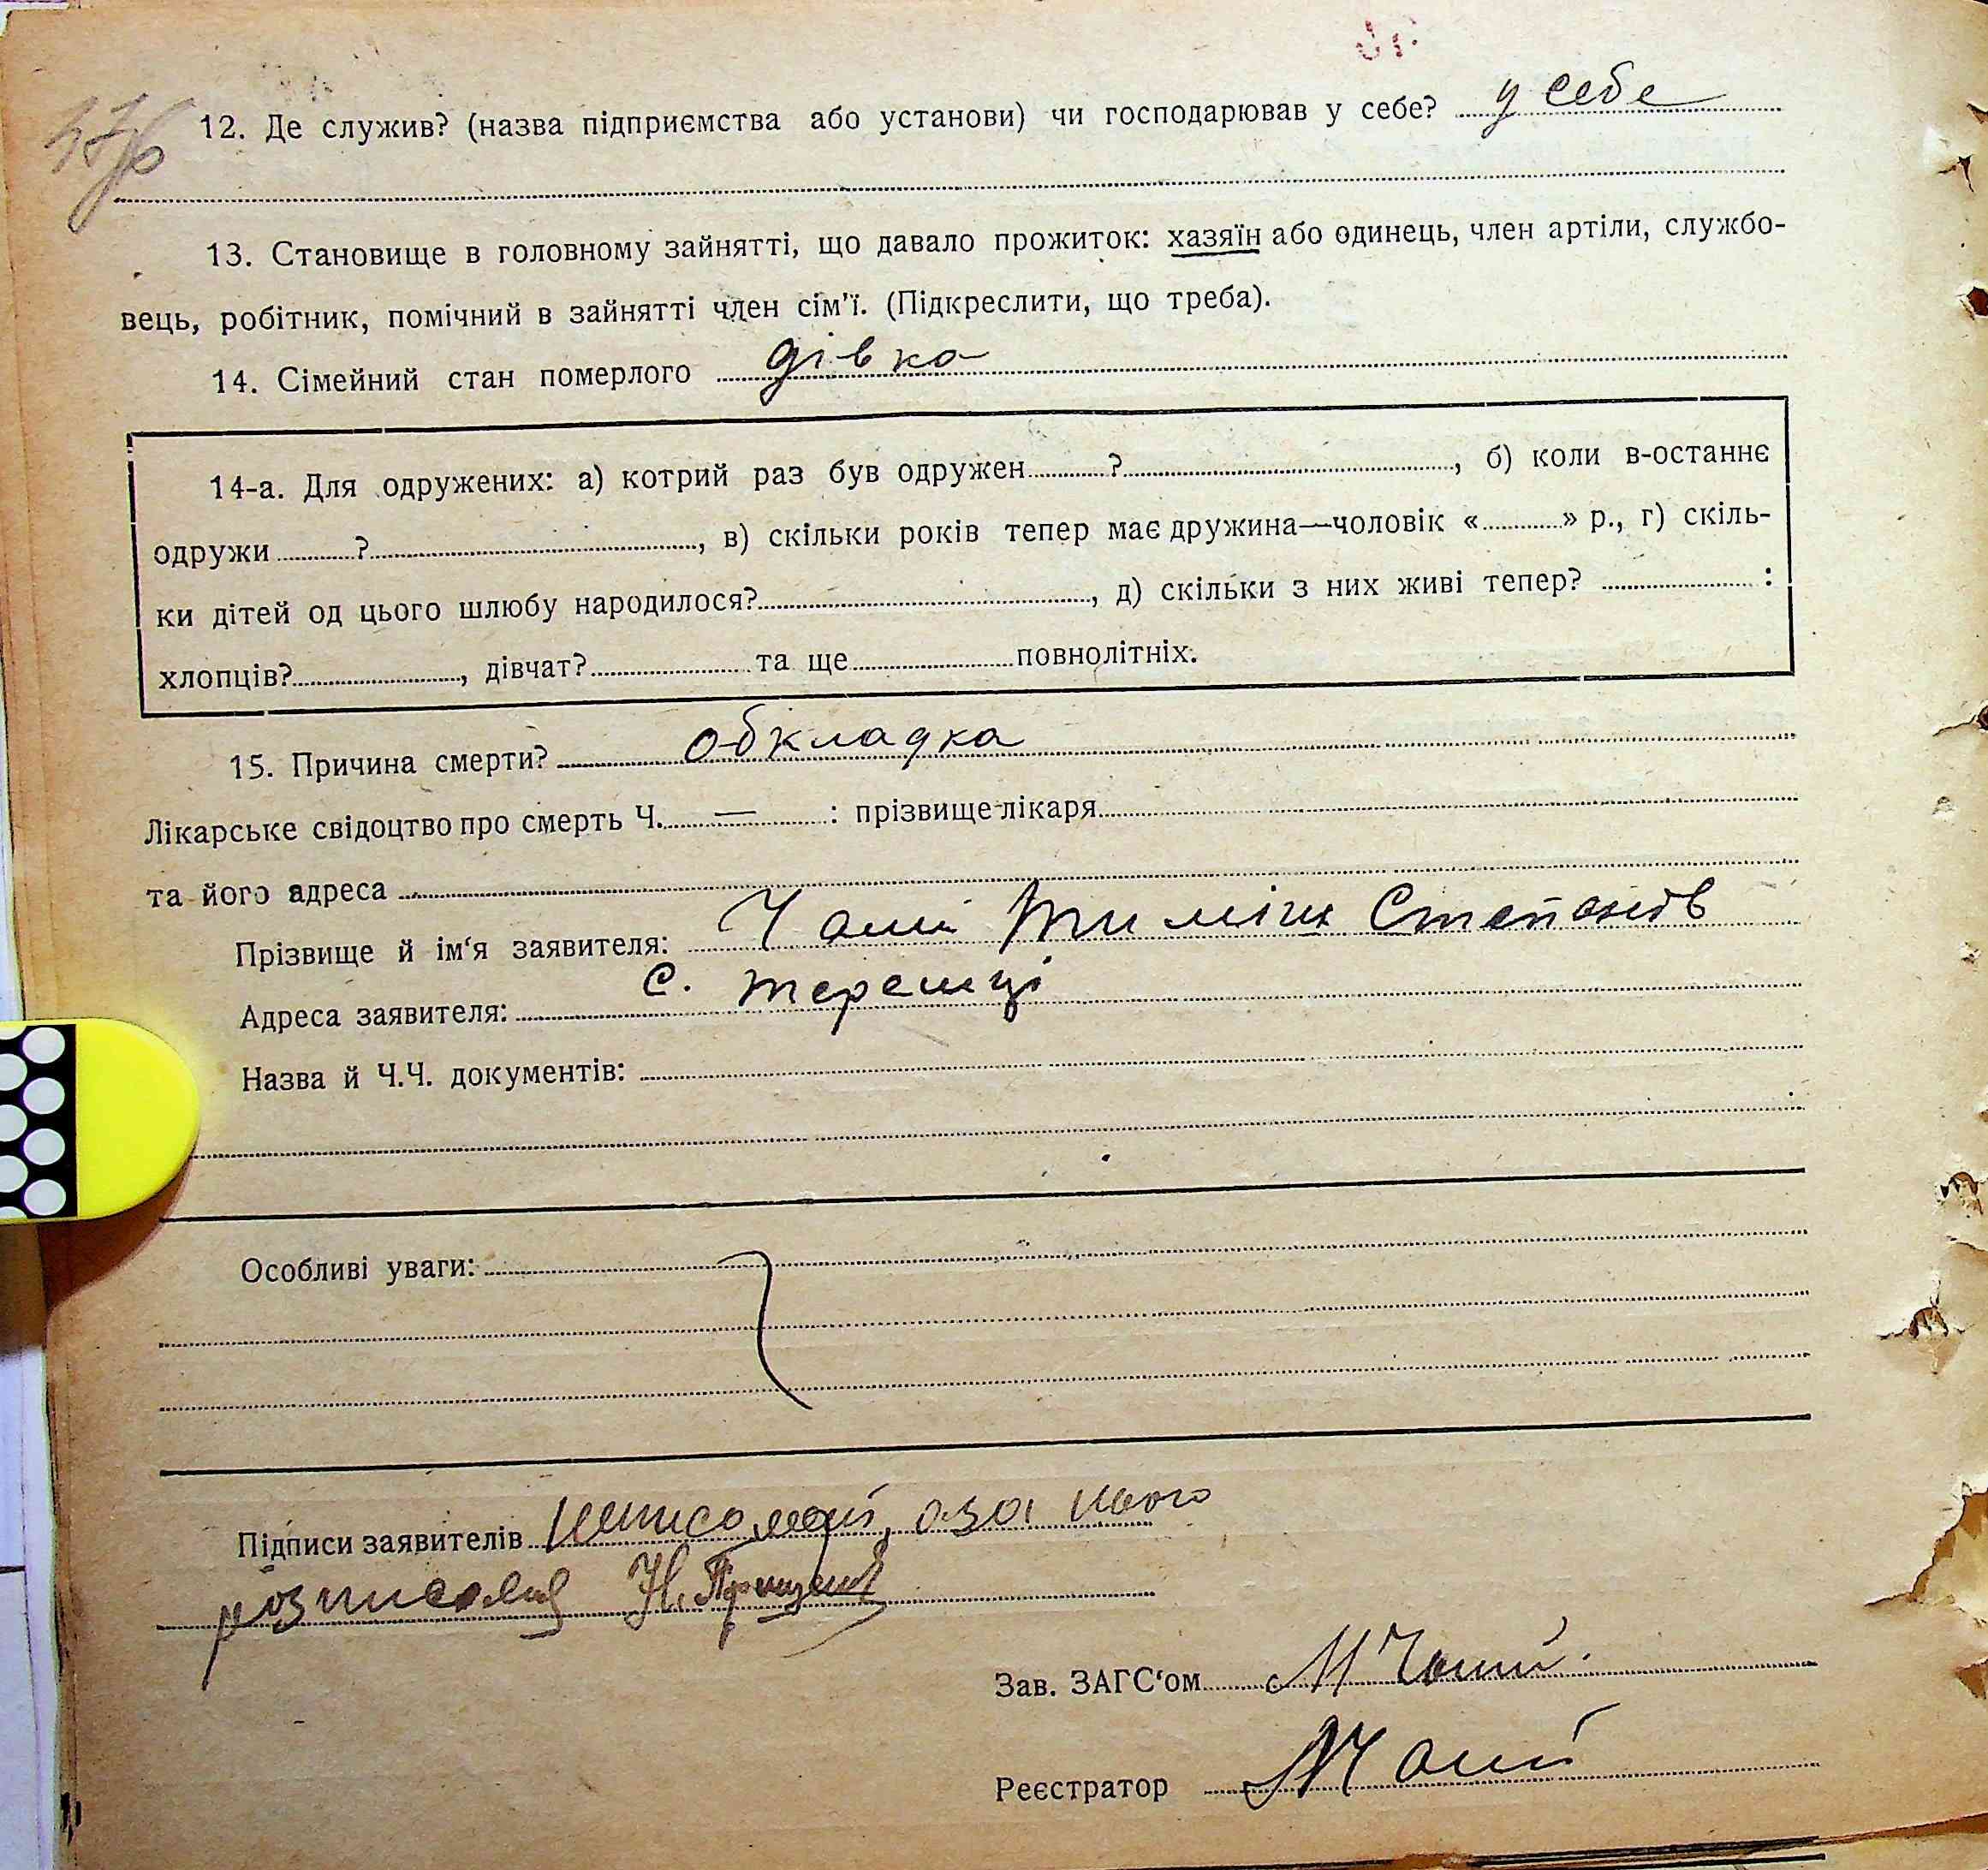 12. Де служив? (назва підприємства або установи) чи господарював у себе? у себе
13. Становище в головному зайнятті, що давало прожиток: хазяїн або одинець, член артіли, службо-
вець, робітник, помічний в зайнятті член сім'ї. (Підкреслити, що треба).
14. Сімейний стан померлого дівка
14-а. Для одружених: а) котрий раз був одружен ? , б) коли в-останнє
одружи ? , в) скільки років тепер має дружина—чоловік « » р., г) скіль-
ки дітей од цього шлюбу народилося? , д) скільки з них живі тепер? :
хлопців? , дівчат? та ще повнолітніх.
15. Причина смерти? обкладка
Лікарське свідоцтво про смерть Ч. — : прізвище лікаря
та його адреса
Прізвище й ім'я заявителя: Чалий Тиміш Степанов
Адреса заявителя: с. Терешці
Назва й Ч.Ч. документів:
Особливі уваги:
Підписи заявителів а за нього
розписался Н.
Зав. ЗАГС'ом
Реєстратор